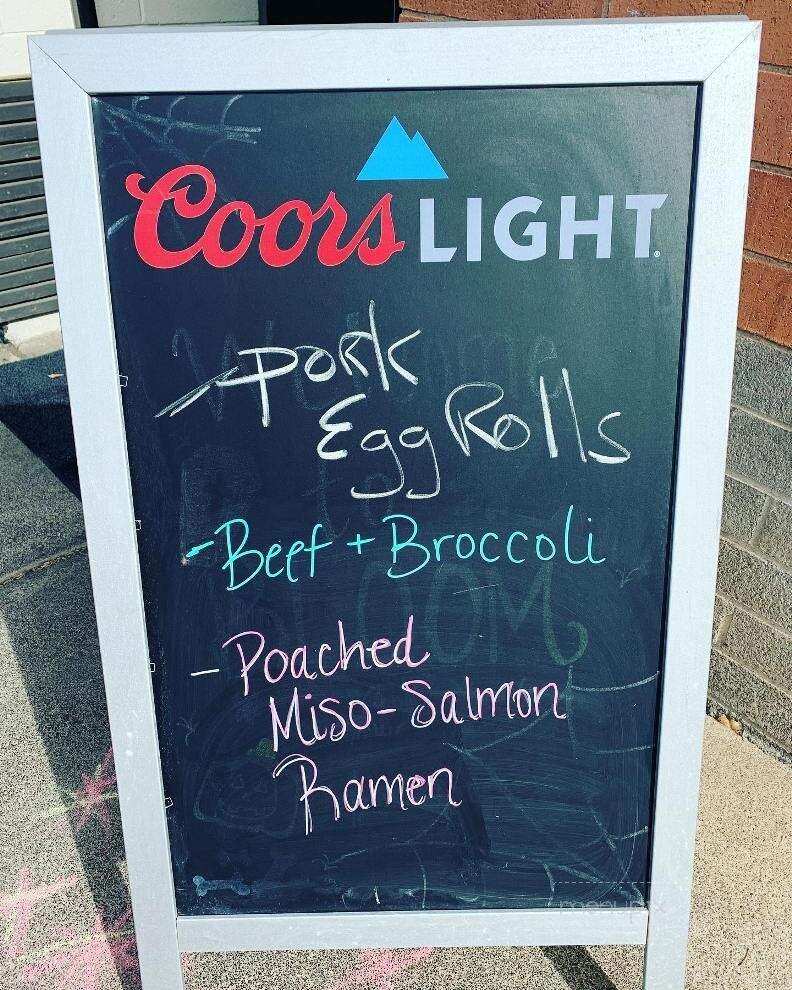 Coors LIGHT
- Pork
Egg Rolls
- Beef + Broccoli
- Poached
Miso-Salmon
Ramen
menupix